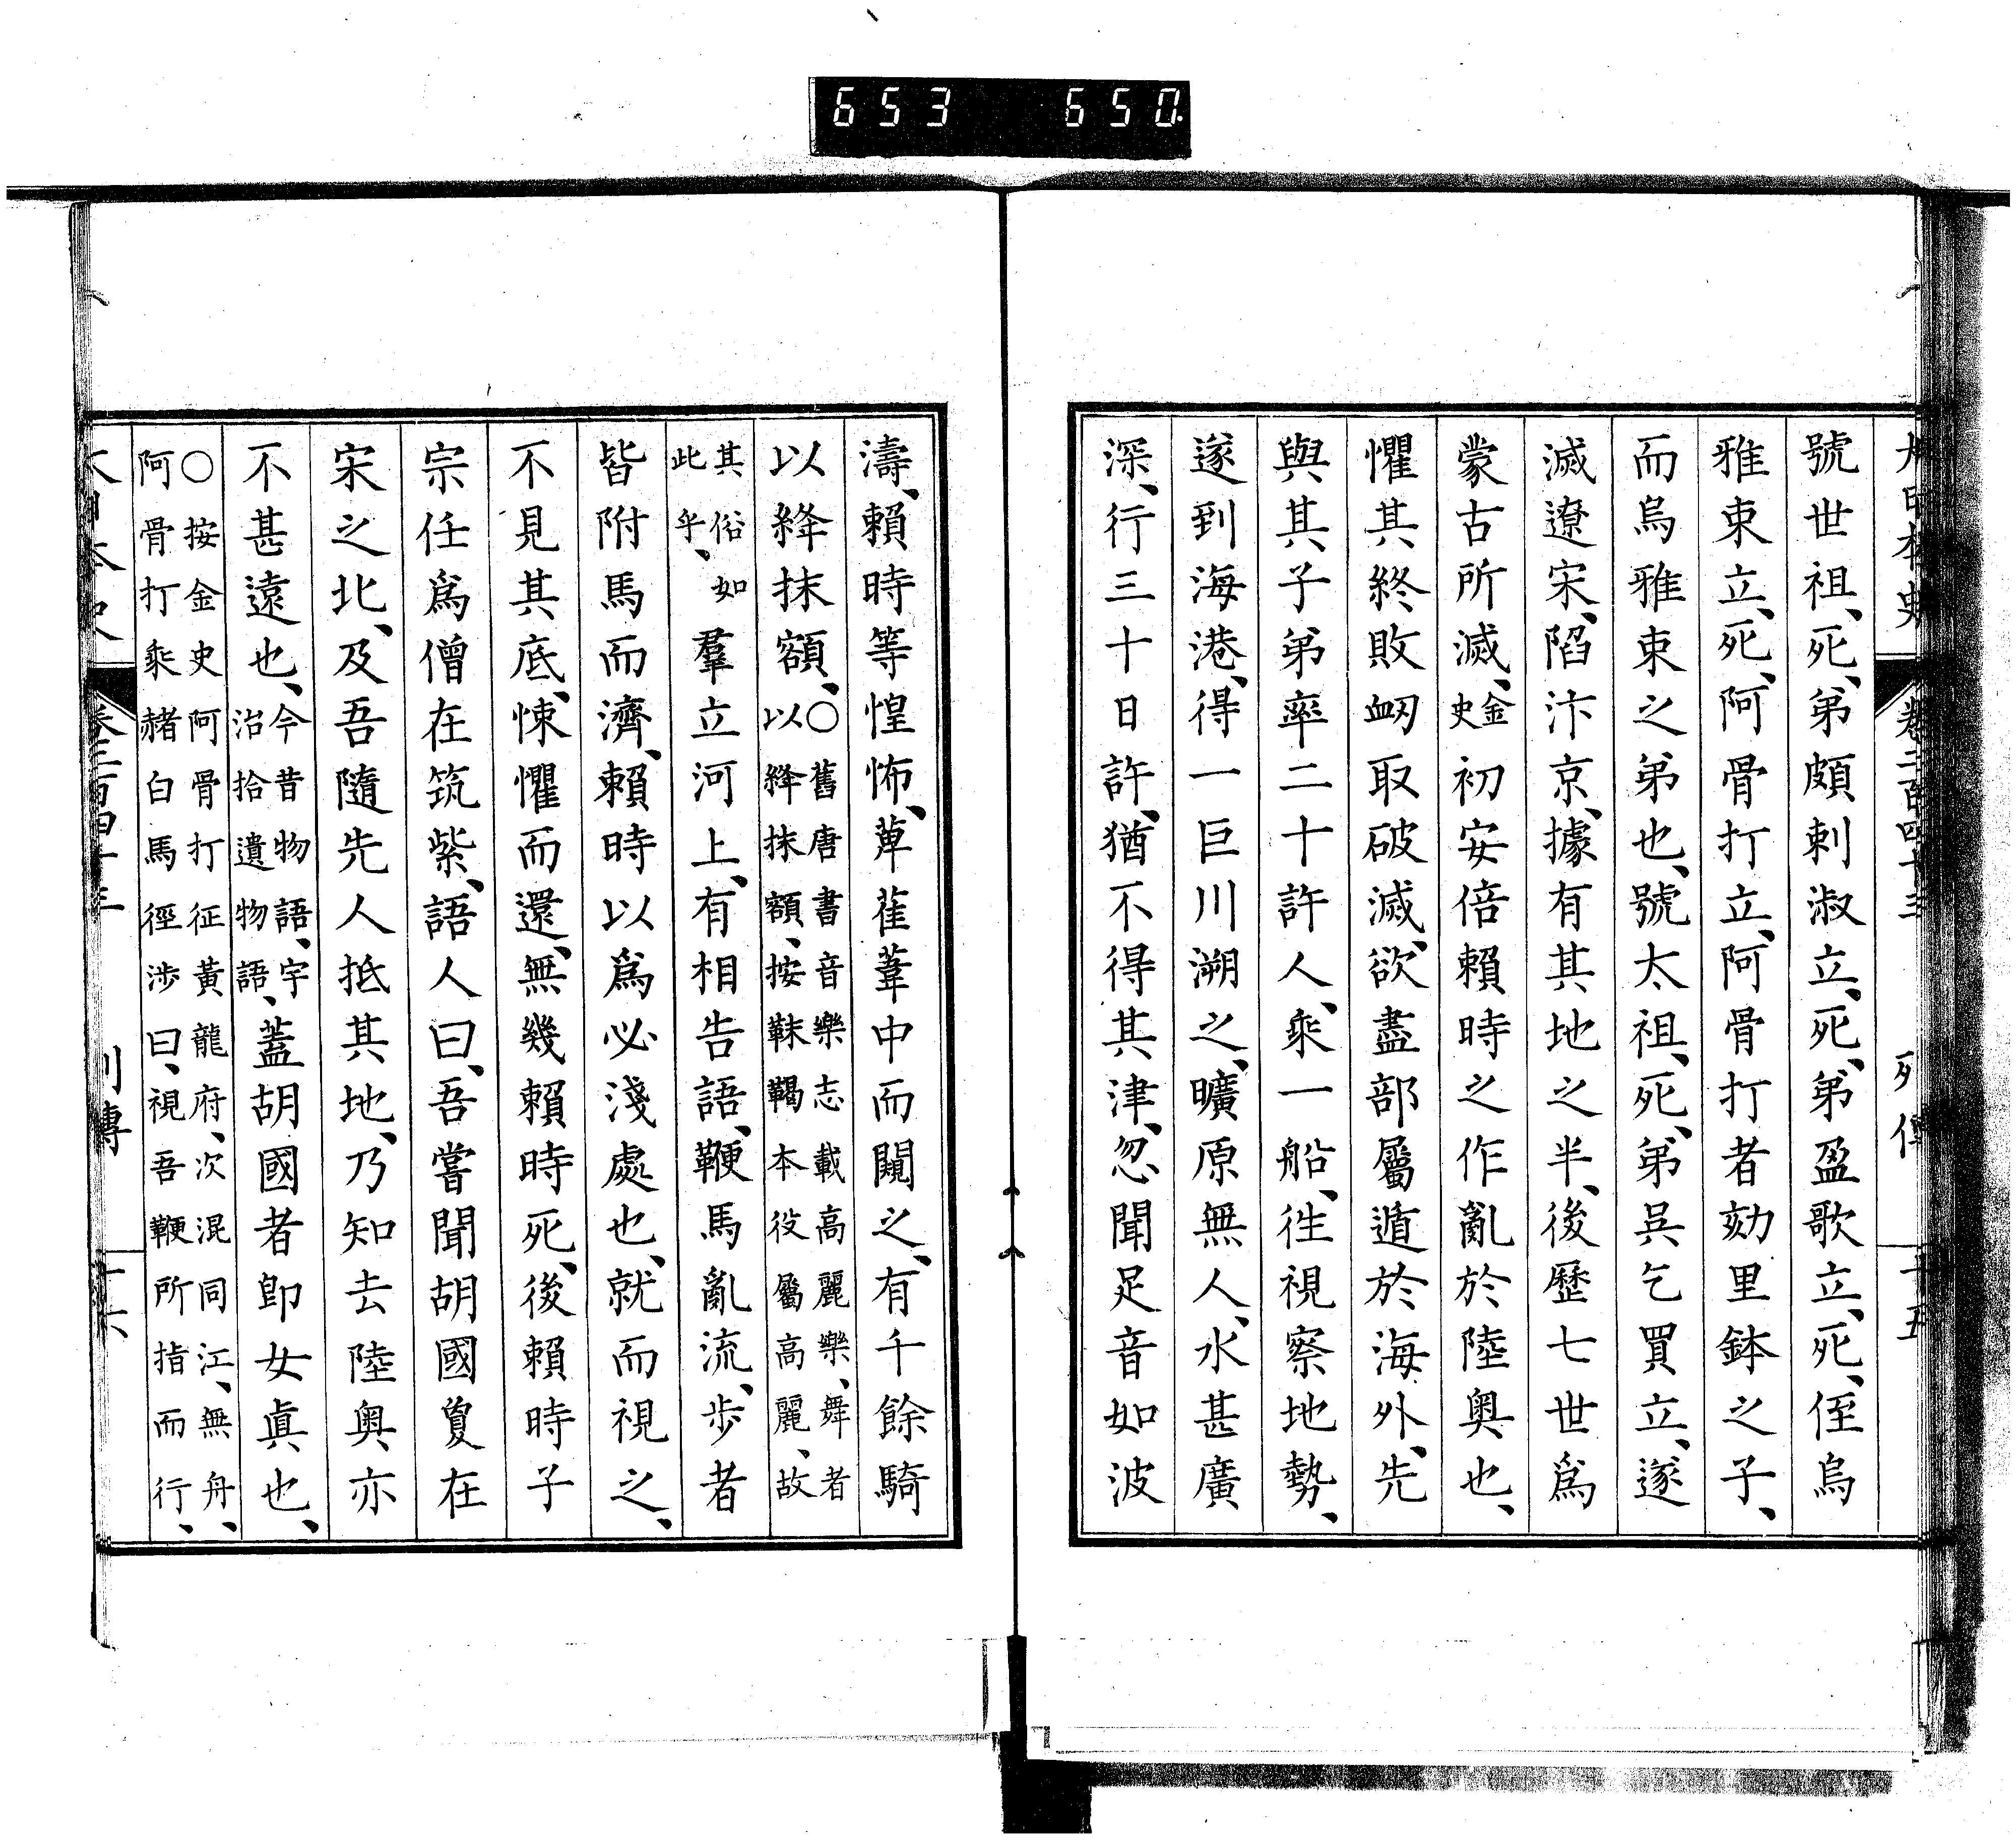 653 650
大日本史 卷二百四十三 列傳 十五
號世祖、死、弟頗剌淑立、死、弟盈歌立、死、侄烏
雅束立、死、阿骨打立、阿骨打者劾里鉢之子、
而烏雅束之弟也、號太祖、死、弟吳乞買立、遂
滅遼宋、陷汴京、據有其地之半、後歷七世爲
蒙古所滅、金史初安倍賴時之作亂於陸奧也、
懼其終敗衂取破滅、欲盡部屬遁於海外、先
與其子弟率二十許人、乘一船、徃視察地勢、
遂到海港、得一巨川溯之、曠原無人、水甚廣
深、行三十日許、猶不得其津、忽聞足音如波
濤、賴時等惶怖、萆萑葦中而闚之、有千餘騎
以絳抹額、○舊唐書音樂志載高麗樂、舞者以絳抹額、按靺鞨本役屬高麗、故
其俗如此乎、羣立河上、有相告語、鞭馬亂流、步者
皆附馬而濟、賴時以爲必淺處也、就而視之、
不見其底、悚懼而還、無幾賴時死、後賴時子
宗任爲僧在筑紫、語人曰、吾嘗聞胡國夐在
宋之北、及吾隨先人抵其地、乃知去陸奧亦
不甚遠也、今昔物語、宇治拾遺物語、蓋胡國者卽女眞也、
○按金史阿骨打征黃龍府、次混同江、無舟、阿骨打乘赭白馬徑涉曰、視吾鞭所指而行、
大日本史 卷二百四十三 列傳 十六